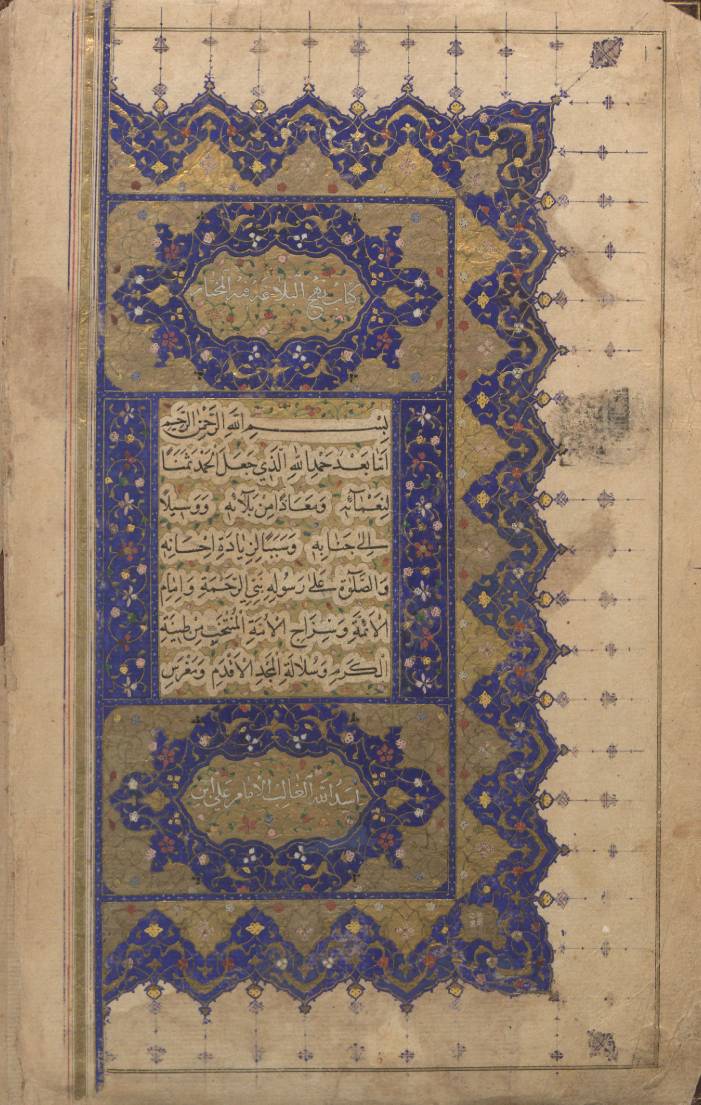 كتاب نهج البلاغة فيه المختار
بِسْمِ اللَّهِ الرَّحْمٰنِ الرَّحِيمِ
اَمَّا بَعْدَ حَمْدِ اللَّهِ الَّذِي جَعَلَ الْحَمْدَ ثَمَنًا
لِنَعْمَائِهِ وَمَعَاذًا مِنْ بَلَائِهِ وَوَسِيلًا
اِلٰى جَنَابِهِ وَسَبَبًا لِزِيَادَةِ اِحْسَانِهِ
وَالصَّلٰوةِ عَلٰى رَسُولِهِ نَبِيِّ الرَّحْمَةِ وَاِمَامِ
الْاَئِمَّةِ وَسِرَاجِ الْاُمَّةِ الْمُنْتَجَبِ مِنْ طِينَةِ
الْكَرَمِ وَسُلَالَةِ الْمَجْدِ الْاَقْدَمِ وَمَغْرَسِ
اسد الله الغالب الامام علي ابن